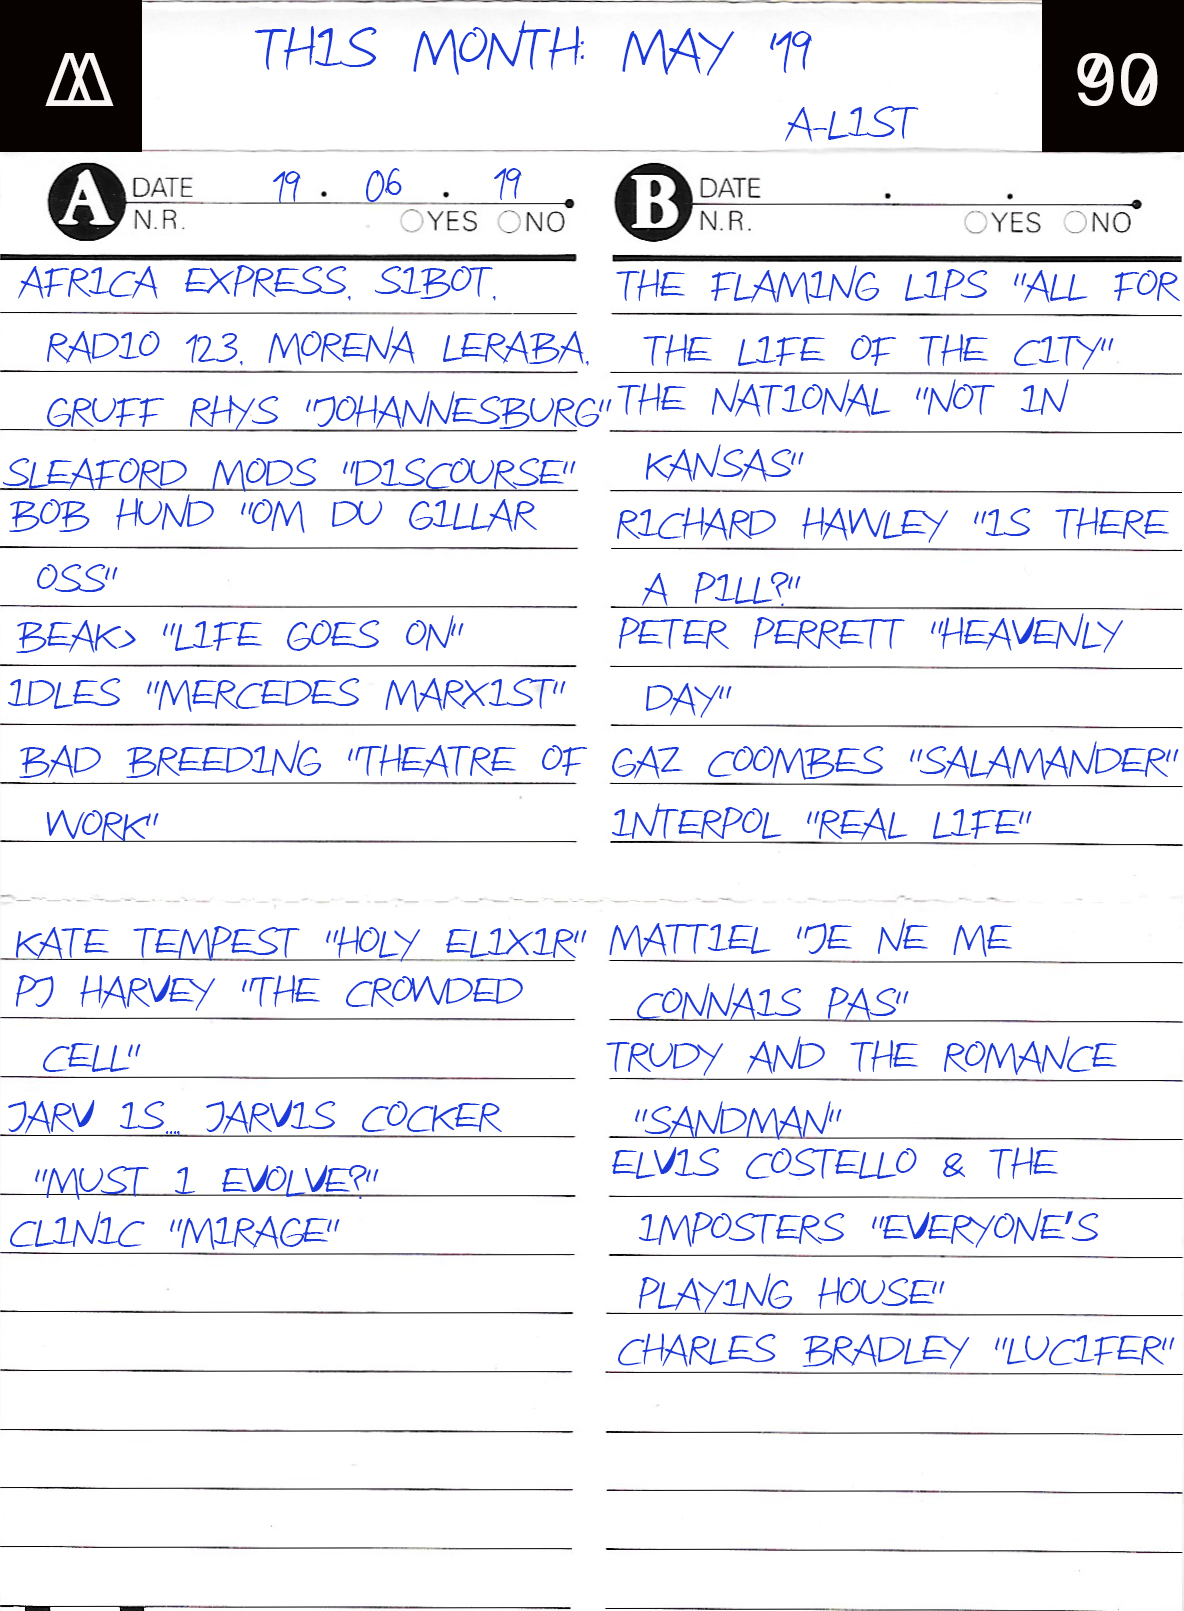 THIS MONTH: MAY '19
A-LIST
90
A
DATE 19 . 06 . 19
N.R. YES NO
AFRICA EXPRESS, SIBOT,
RADIO 123, MORENA LERABA,
GRUFF RHYS "JOHANNESBURG"
SLEAFORD MODS "DISCOURSE"
BOB HUND "OM DU GILLAR
OSS"
BEAK> "LIFE GOES ON"
IDLES "MERCEDES MARXIST"
BAD BREEDING "THEATRE OF
WORK"
KATE TEMPEST "HOLY ELIXIR"
PJ HARVEY "THE CROWDED
CELL"
JARV IS... JARVIS COCKER
"MUST I EVOLVE?"
CLINIC "MIRAGE"
B
DATE . .
N.R. YES NO
THE FLAMING LIPS "ALL FOR
THE LIFE OF THE CITY"
THE NATIONAL "NOT IN
KANSAS"
RICHARD HAWLEY "IS THERE
A PILL?"
PETER PERRETT "HEAVENLY
DAY"
GAZ COOMBES "SALAMANDER"
INTERPOL "REAL LIFE"
MATTIEL "JE NE ME
CONNAIS PAS"
TRUDY AND THE ROMANCE
"SANDMAN"
ELVIS COSTELLO & THE
IMPOSTERS "EVERYONE'S
PLAYING HOUSE"
CHARLES BRADLEY "LUCIFER"